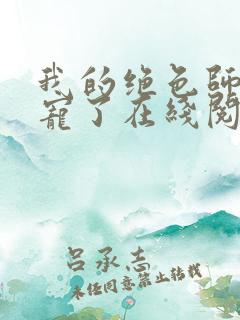 我的绝色师
宠了在綫阅
吕承志
未经同意禁止转载